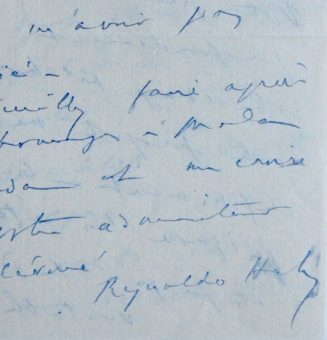 m'avoir pas
cié-
euillez faire agréer
hommages à Mada
dam et me croire
estre admirateur
dévoué
Reynaldo Hahn